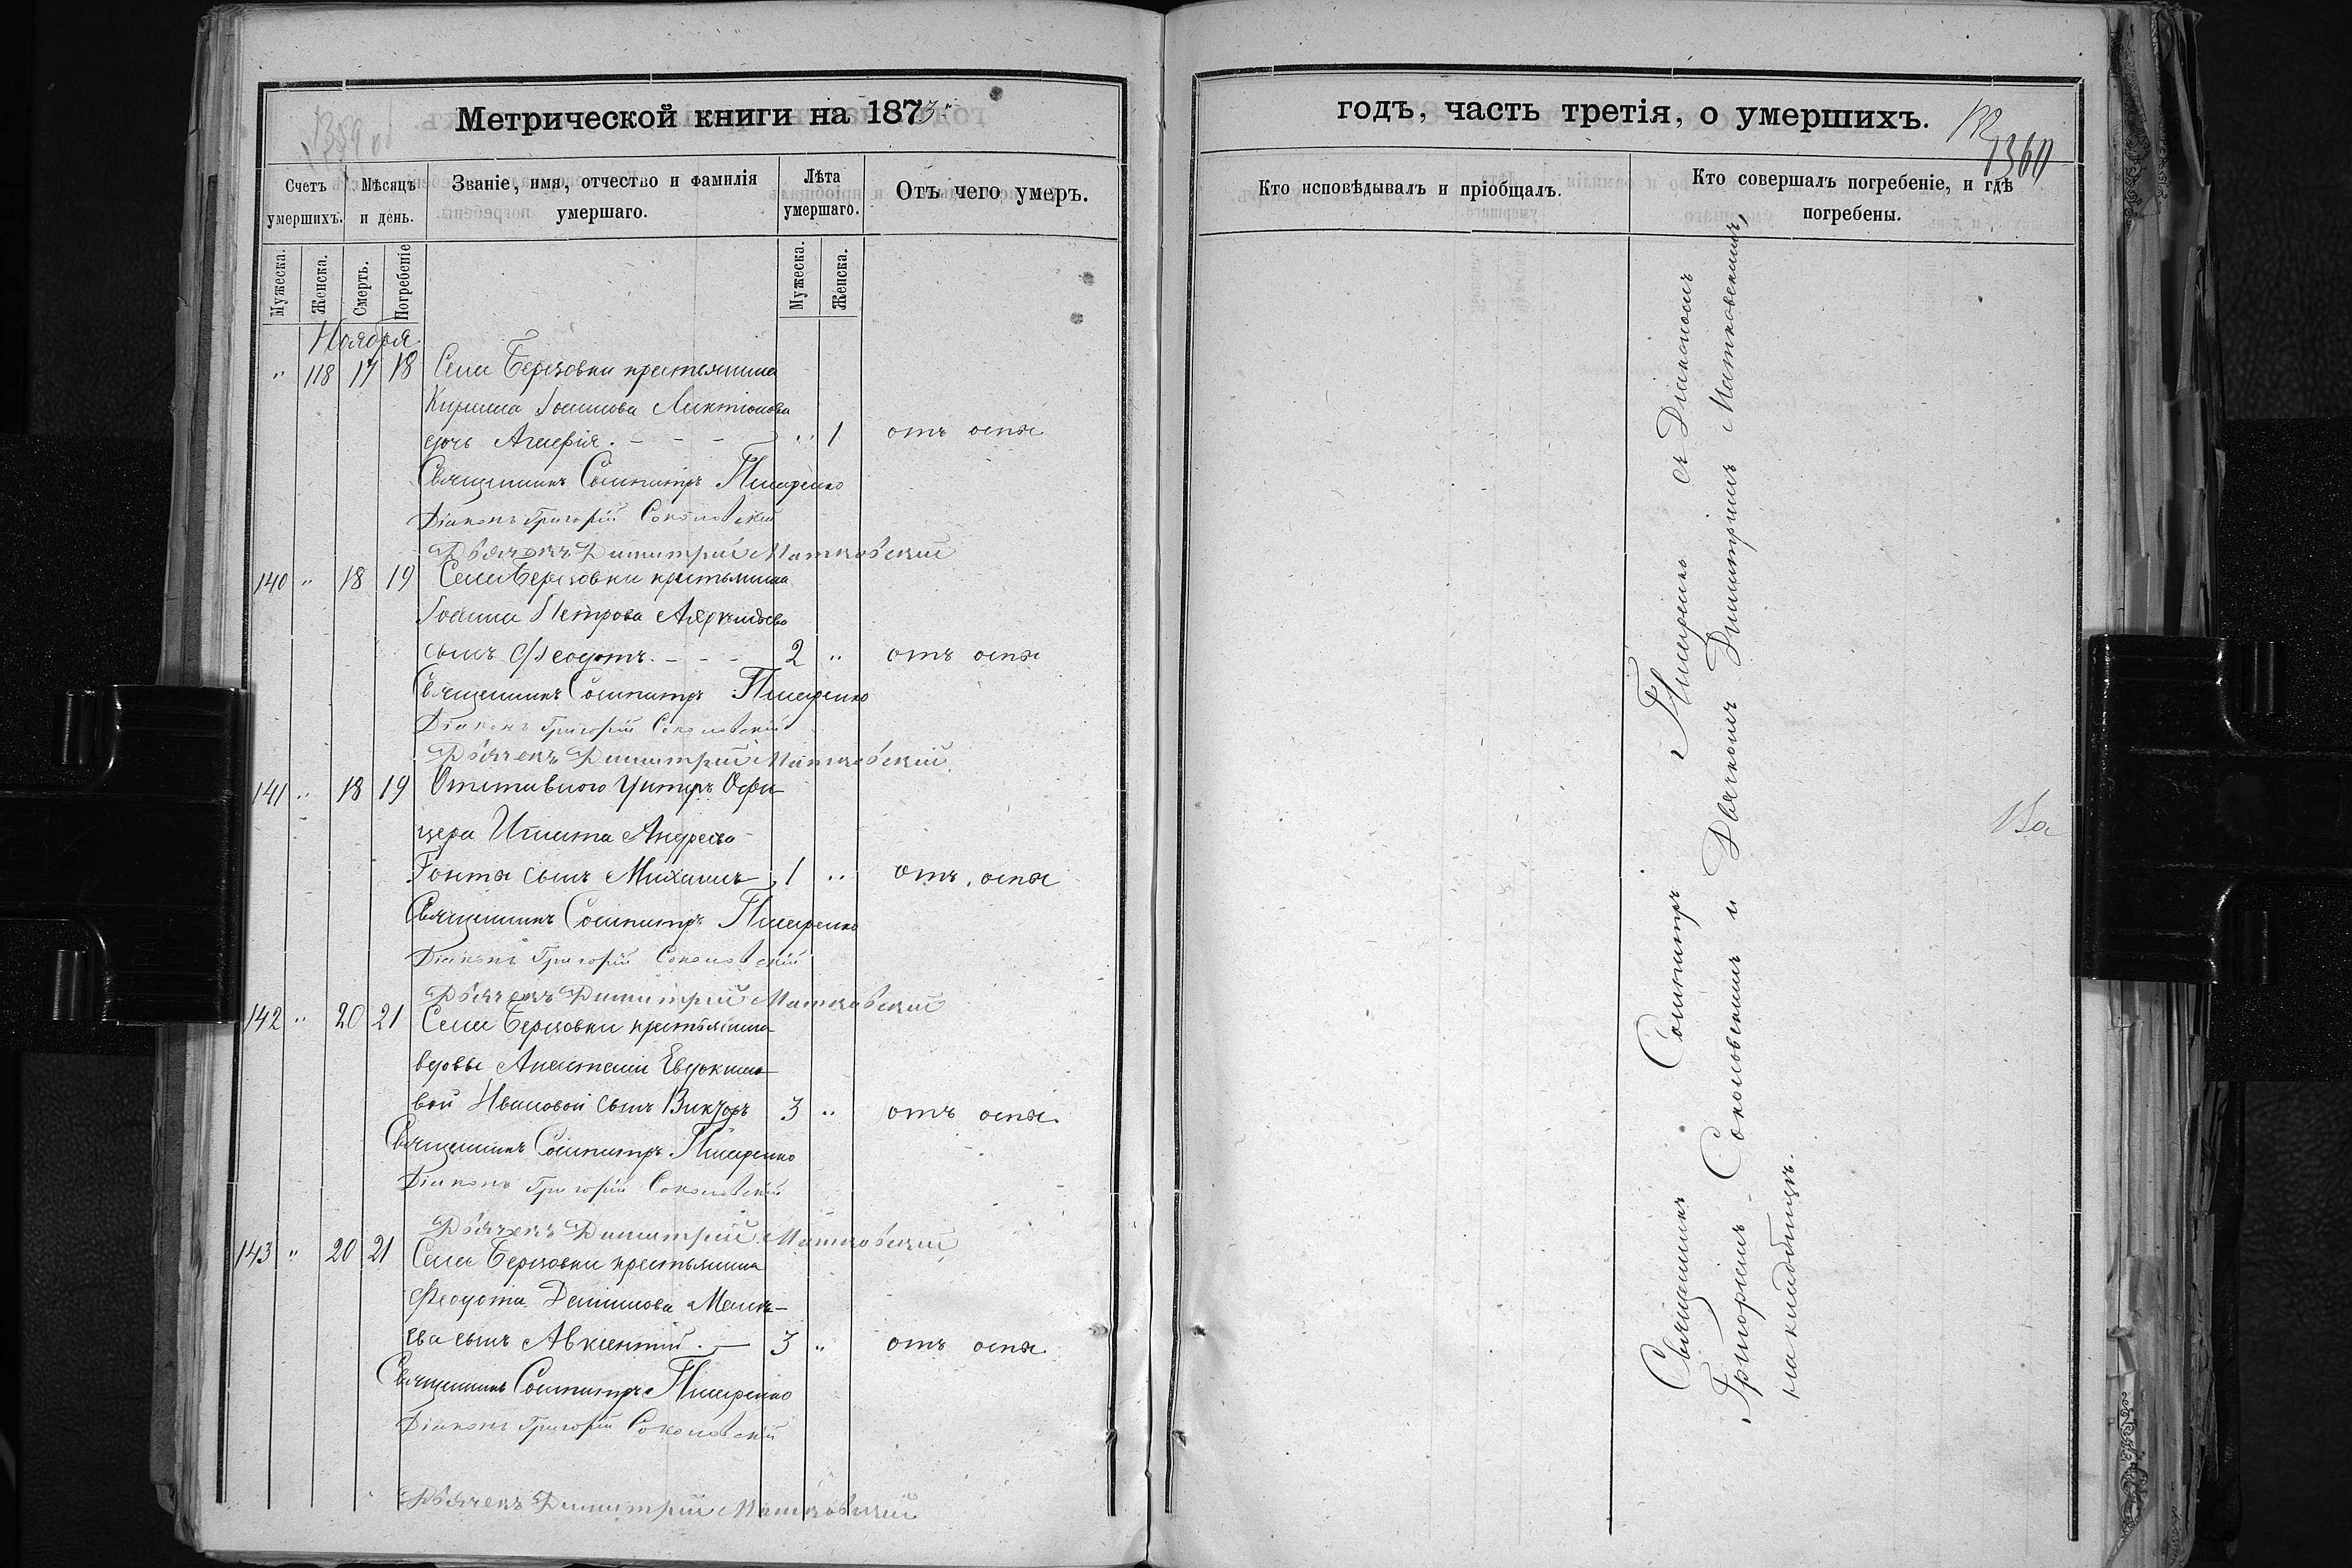 Метрической книги на 1873
1359 об
Счетъ умершихъ.
Мѣсяцъ и день.
Званіе, имя, отчество и фамилія умершаго.
Лѣта умершаго.
Отъ чего умеръ.
Мужеска.
Женска.
Смерть.
Погребеніе
Мужеска.
Женска.
Ноября.
" 118 17 18 Села Березовки крестьянина
Кирилла Іоаннова Лактіонова
дочь - - - " 1 отъ оспы
Священникъ Сосипатръ Писаренко
Діаконъ Григорій Соколовскій
Дьячекъ Димитрій Матковскій
140 " 18 19 Села Березовки крестьянина
Іоанна Петрова
сынъ Ѳеодотъ. - - - 2 " отъ оспы
Священникъ Сосипатръ Писаренко
Діаконъ Григорій Соколовскій
Дьячекъ Димитрій Матковскій
141 " 18 19 Отставного Унтеръ Офи-
цера Игната Андреева
Гонты сынъ Михаилъ 1 " отъ оспы
Священникъ Сосипатръ Писаренко
Діаконъ Григорій Соколовскій
Дьячекъ Димитрій Матковскій
142 " 20 21 Села Березовки крестьянина
вдовы Анастасіи Евдокимо-
вой Ивановой сынъ Викторъ 3 " отъ оспы.
Священникъ Сосипатръ Писаренко
Діаконъ Григорій Соколовскій
Дьячекъ Димитрій Матковскій
143 " 20 21 Села Березовки крестьянина
Ѳеодота Даниилова
ева сынъ Авксентій. — 3 " отъ оспы.
Священникъ Сосипатръ Писаренко
Діаконъ Григорій Соколовскій
Дьячекъ Димитрій Матковскій
годъ, часть третія, о умершихъ.
1360
Кто исповѣдывалъ и пріобщалъ.
Кто совершалъ погребеніе, и гдѣ погребены.
Священникъ Сосипатръ Писаренко съ Діакономъ
Григоріемъ Соколовскимъ и Дьячкомъ Димитріемъ Матковскимъ,
на кладбищѣ.